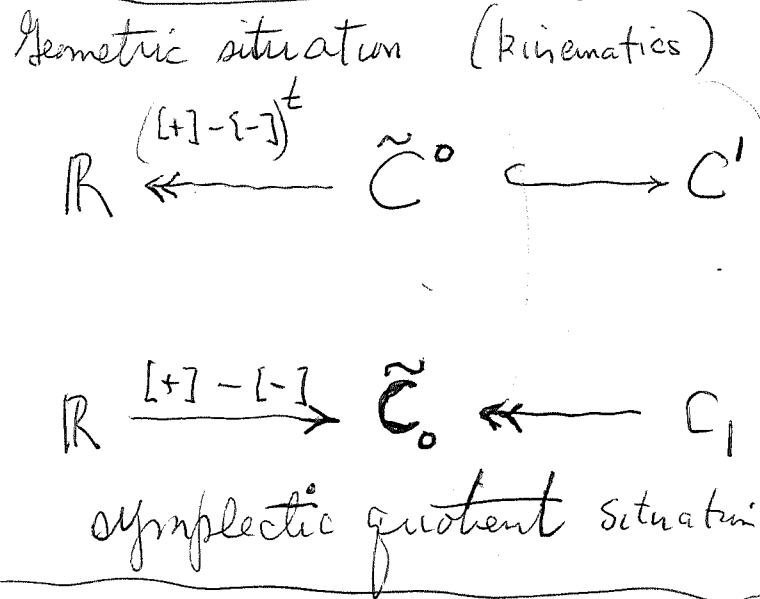 Geometric situation (kinematics)
([+]-[-])^t
ℝ ↞ C̃⁰ ↪ C¹
[+] - [-]
ℝ → C̃₀ ↞ C₁
symplectic quotient situation